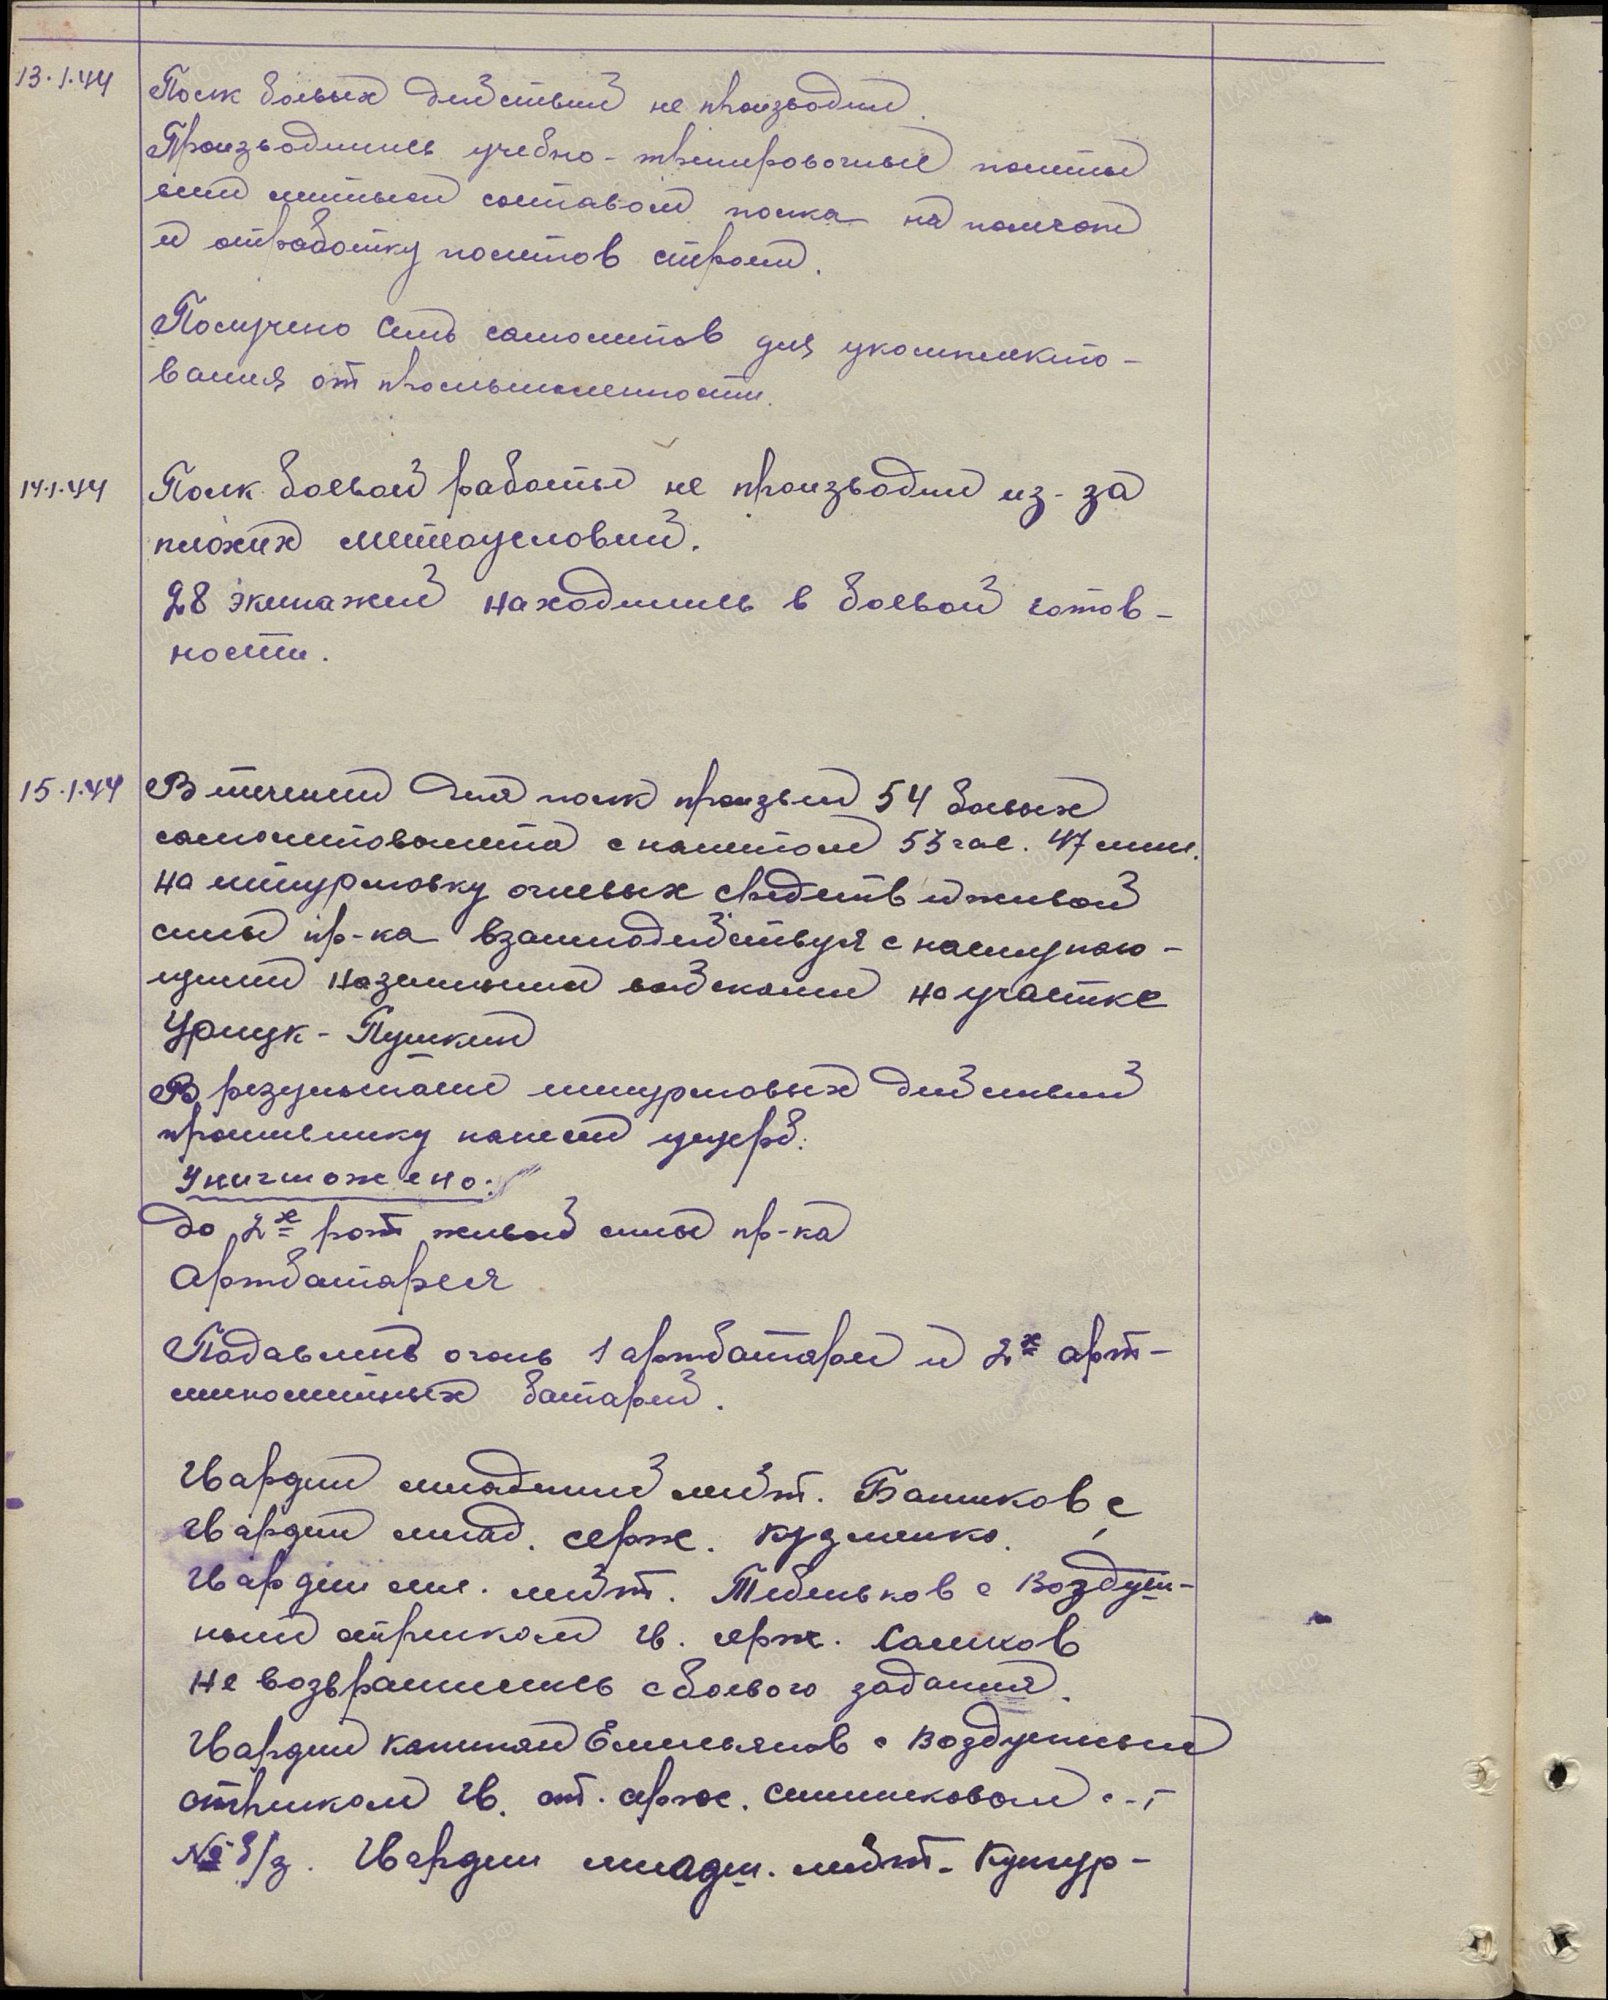 13.1.44 Полк боевых действий не производил.
Производились учебно-тренировочные полеты
летным составом полка на полигон
и отработку полетов строем.
Получено семь самолетов для укомплекто-
вания от промышленности.
14.1.44 Полк боевой работы не производил из-за
плохих метеоусловий.
28 экипажей находились в боевой готов-
ности.
15.1.44 В течении дня полк произвел 54 боевых
самолетовылета с налетом 53 час. 47 мин.
на штурмовку огневых средств и живой
силы пр-ка взаимодействуя с наступаю-
щими наземными войсками на участке
Урицк - Пушкин
В результате штурмовых действий
противнику нанесен ущерб:
Уничтожено:
до 2х рот живой силы пр-ка
Артбатарея
Подавлен огонь 1 артбатареи и 2х арт-
минометных батарей.
Гвардии младший лейт. Башиков с
гвардии млад. серж. Кузменко.
Гвардии мл. лейт. Тебеньков с воздуш-
ным стрелком гв. серж. Салихов
не возвратились с боевого задания.
Гвардии капитан Емельянов с воздушным
стрелком гв. ст. серж. Синчиковым
Гвардии младш. лейт. Кунгур-